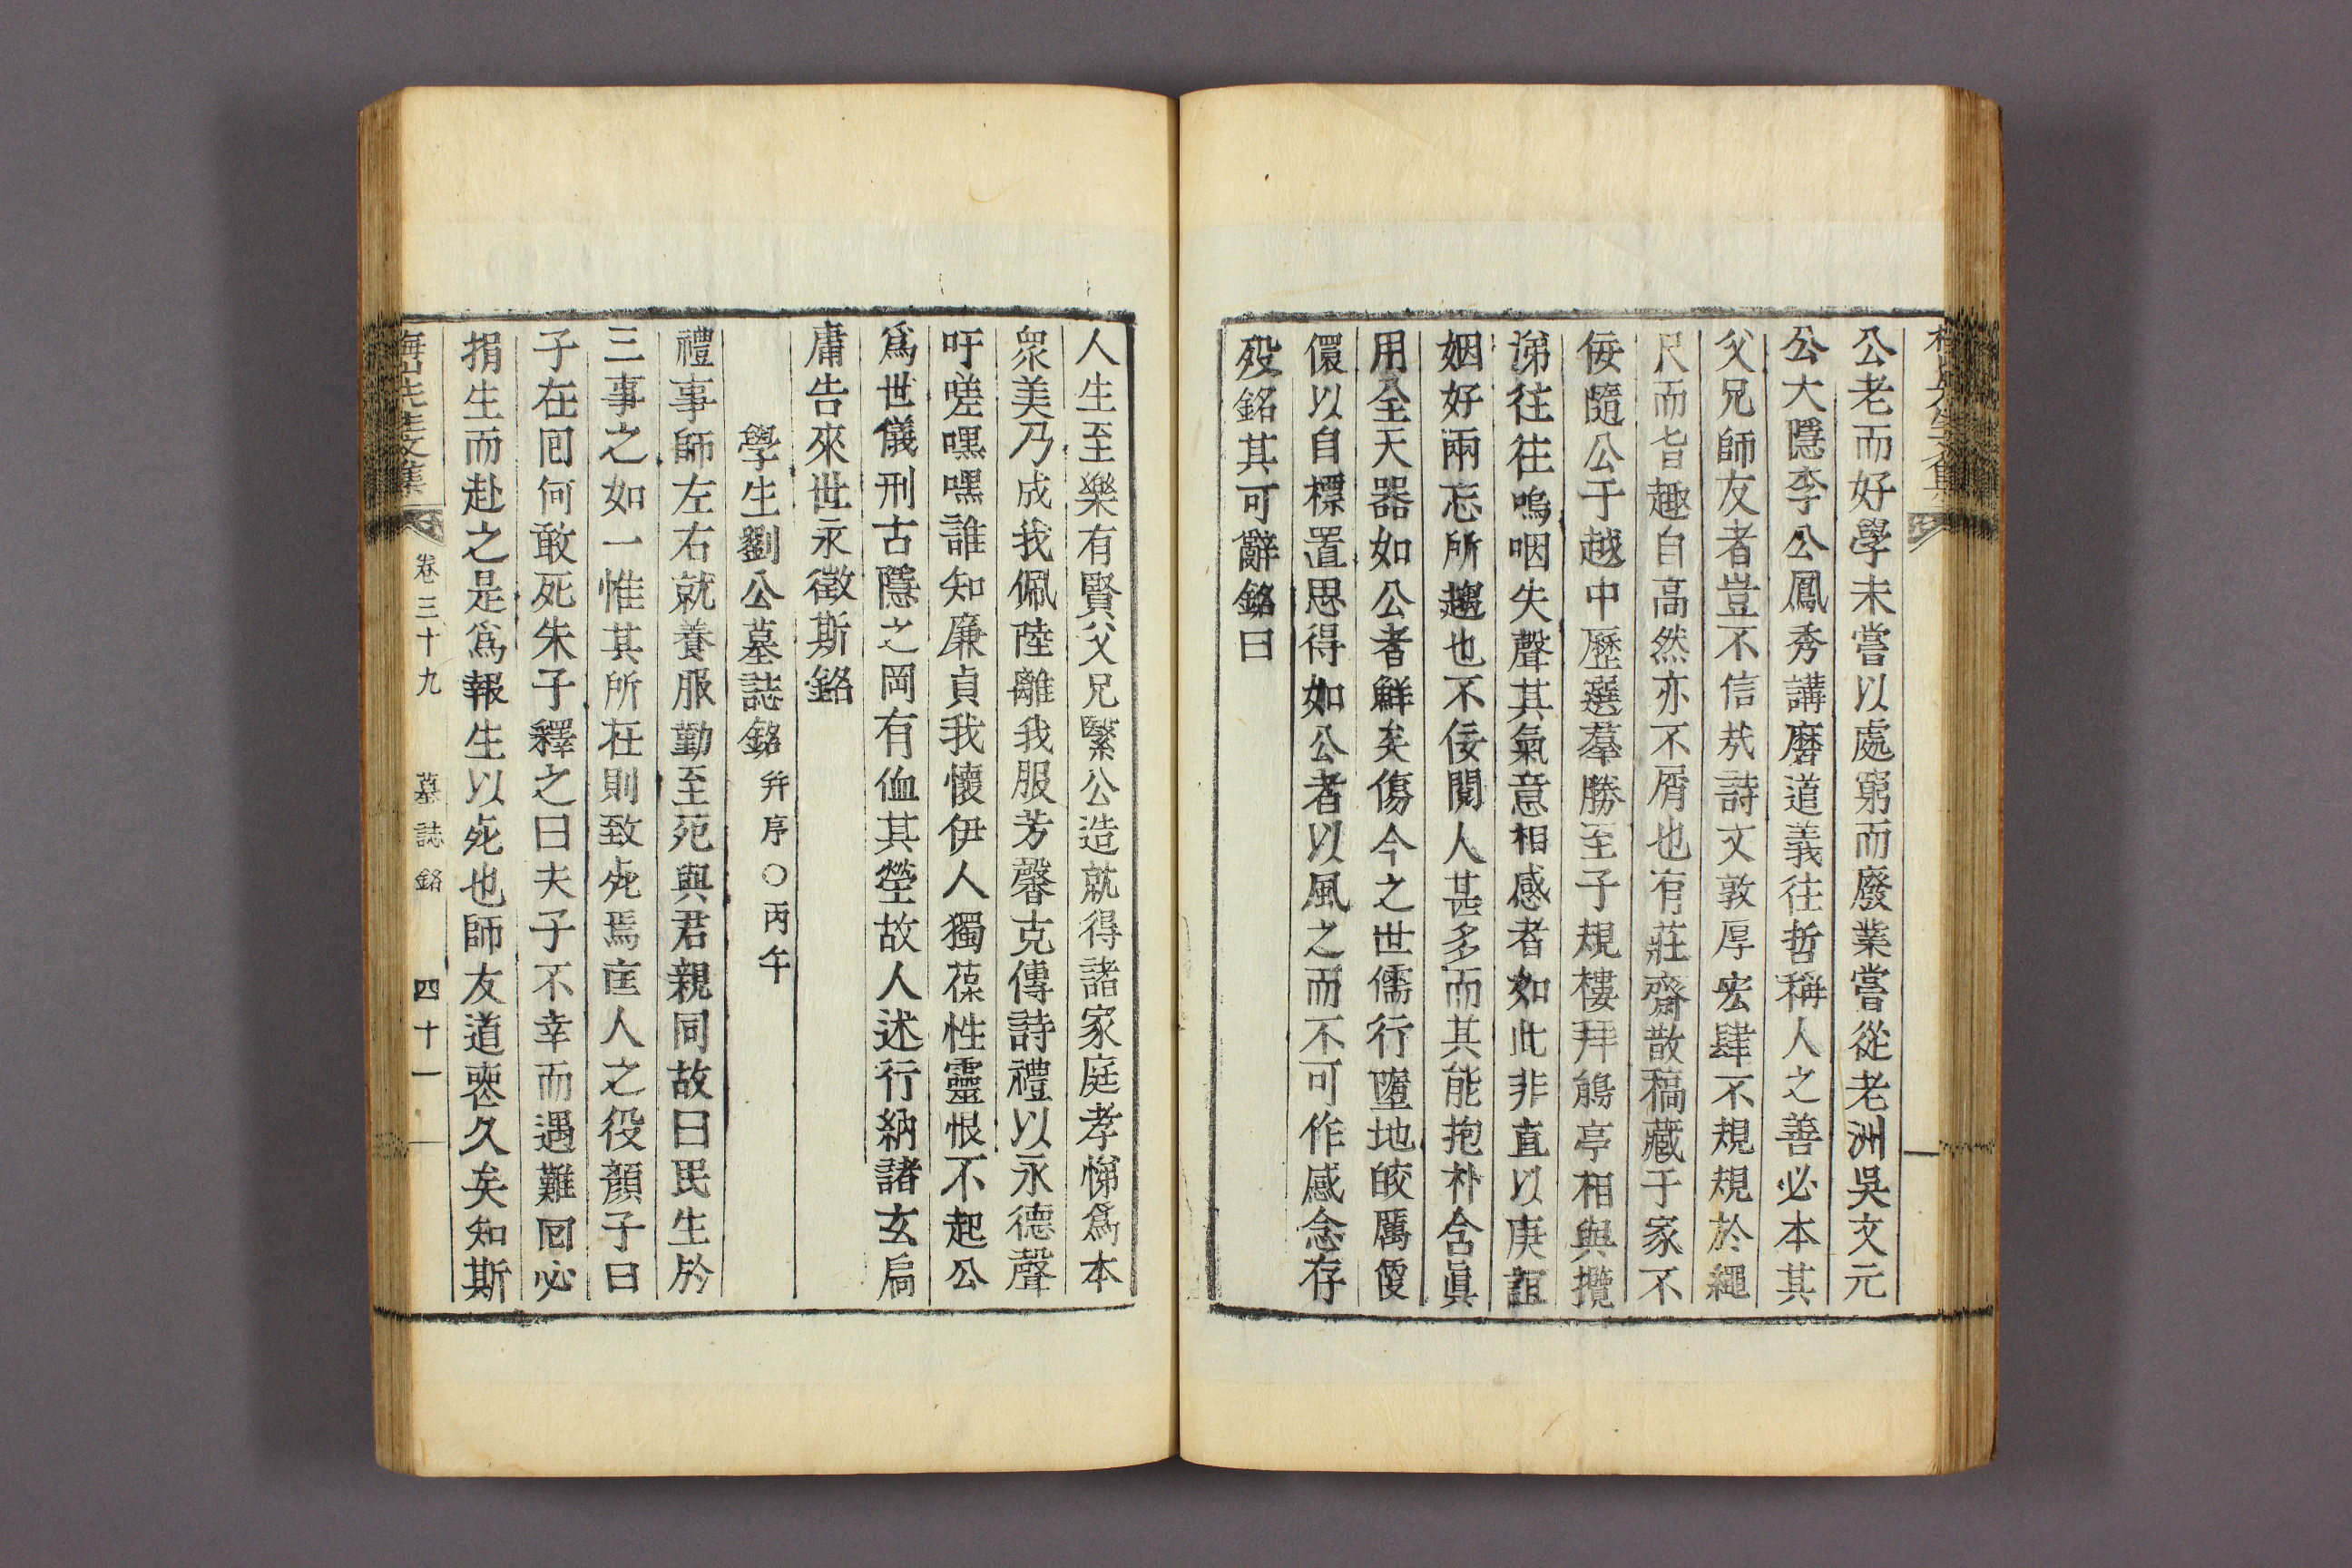 公老而好學未嘗以處窮而廢業嘗從老洲吳文元
公大隱李公鳳秀講磨道義往哲稱人之善必本其
父兄師友者豈不信哉詩文敦厚宏肆不規規於繩
尺而旨趣自高然亦不屑也有莊齋散稿藏于家不
佞隨公于越中歷選羣勝至子規樓拜鵑亭相與攬
涕往往嗚咽失聲其氣意相感者如此非直以庚誼
姻好兩忘所趨也不佞閱人甚多而其能抱朴含眞
用全天器如公者鮮矣傷今之世儒行墮地皎厲
儇以自標置思得如公者以風之而不可作感念存
歿銘其可辭銘曰
人生至樂有賢父兄繄公造就得諸家庭孝悌爲本
衆美乃成我佩陸離我服芳馨克傳詩禮以永德聲
吁嗟嘿嘿誰知廉貞我懷伊人獨葆性靈恨不起公
爲世儀刑古隱之岡有侐其塋故人述行納諸玄扃
庸告來世永徵斯銘
學生劉公墓誌銘 幷序○丙午
禮事師左右就養服勤至死與君親同故曰民生於
三事之如一惟其所在則致死焉匡人之役顏子曰
子在回何敢死朱子釋之曰夫子不幸而遇難回必
捐生而赴之是爲報生以死也師友道喪久矣知斯
梅山先生文集 卷三十九 墓誌銘 四十一